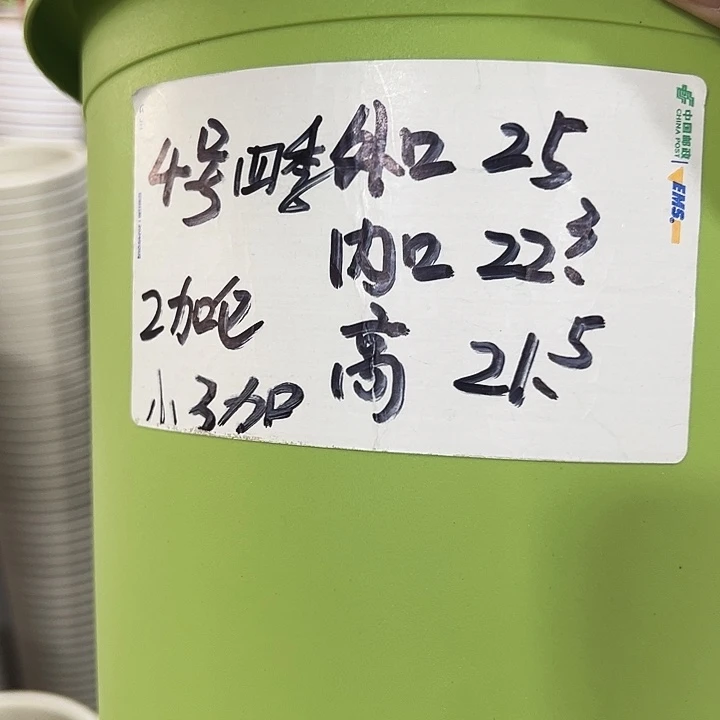 4号四季 外口 25
内口 22.3
2加仑
高 21.5
小3加
中国邮政
CHINA POST
EMS